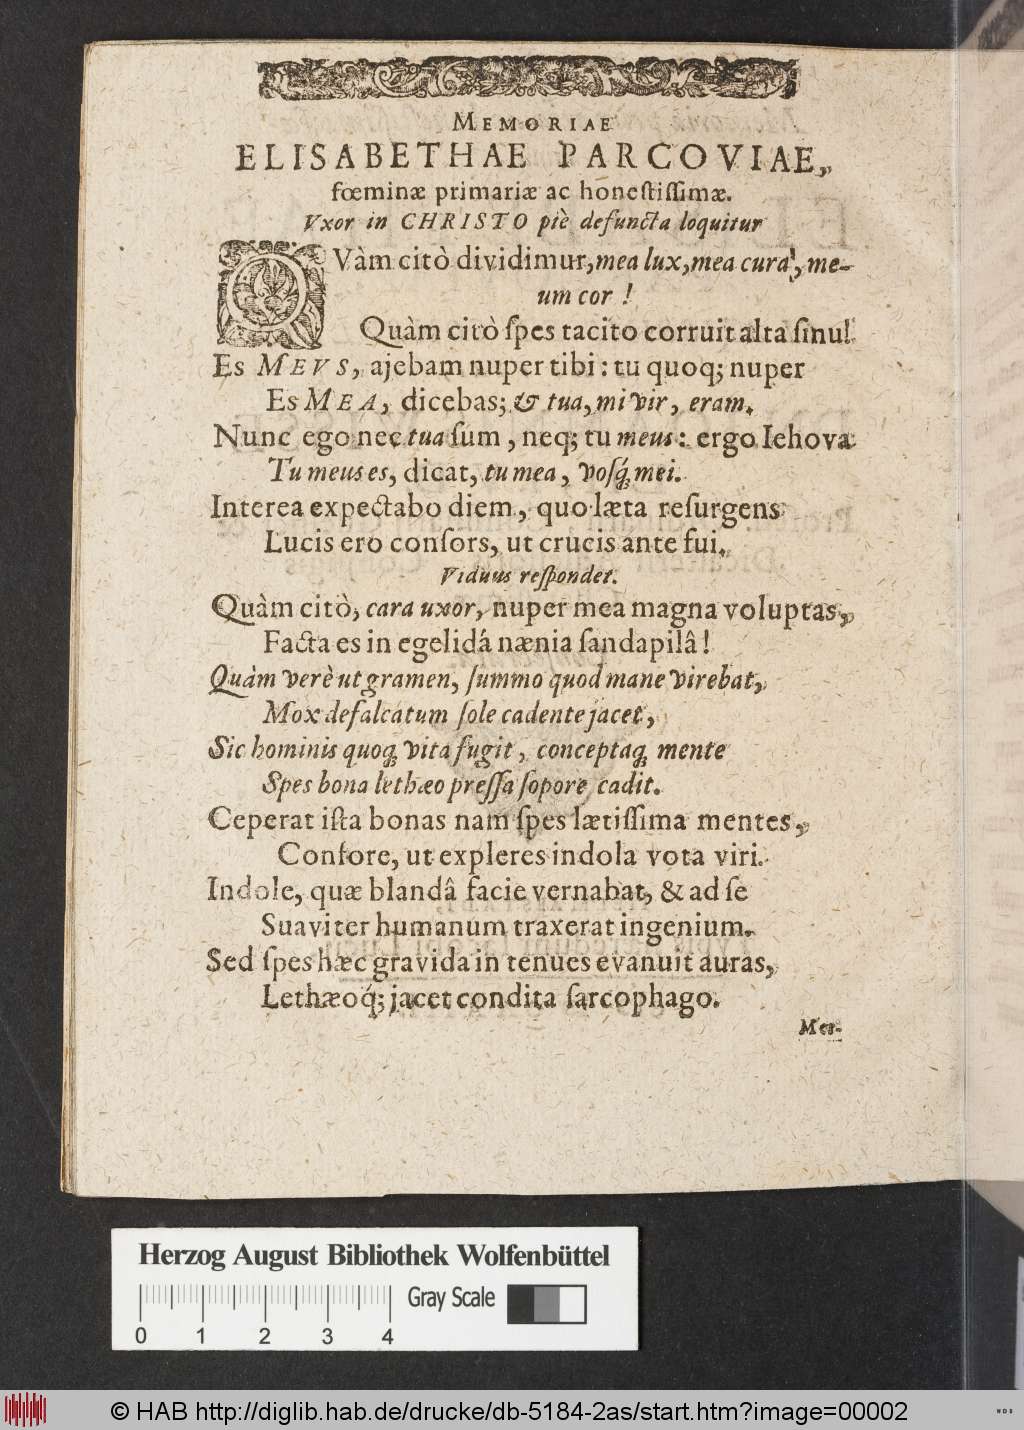 MEMORIAE
ELISABETHAE PARCOVIAE,
fœminæ primariæ ac honeſtiſſimæ.
Vxor in CHRISTO piè defuncta loquitur
QVàm citò dividimur, mea lux, mea cura, me-
um cor !
Quàm citò ſpes tacito corruit alta ſinu!
Es MEVS, ajebam nuper tibi: tu quoq; nuper
Es MEA, dicebas; & tua, mi vir, eram.
Nunc ego nec tua ſum, neq; tu meus: ergo Iehova
Tu meus es, dicat, tu mea, voſq́; mei.
Interea expectabo diem, quo læta reſurgens
Lucis ero conſors, ut crucis ante fui.
Viduus reſpondet.
Quàm citò, cara uxor, nuper mea magna voluptas,
Facta es in egelidá nænia ſandapilâ!
Quàm verè ut gramen, ſummo quod mane virebat,
Mox defalcatum ſole cadente jacet,
Sic hominis quoq; vita fugit, conceptaq; mente
Spes bona lethæo preſſa ſopore cadit.
Ceperat iſta bonas nam ſpes lætiſſima mentes,
Conſore, ut expleres indola vota viri.
Indole, quæ blandâ facie vernabat, & ad ſe
Suaviter humanum traxerat ingenium.
Sed ſpes hæc gravida in tenues evanuit auras,
Lethæoq́; jacet condita ſarcophago.
Mer-
Herzog August Bibliothek Wolfenbüttel
Gray Scale
0 1 2 3 4
© HAB http://diglib.hab.de/drucke/db-5184-2as/start.htm?image=00002
WDB